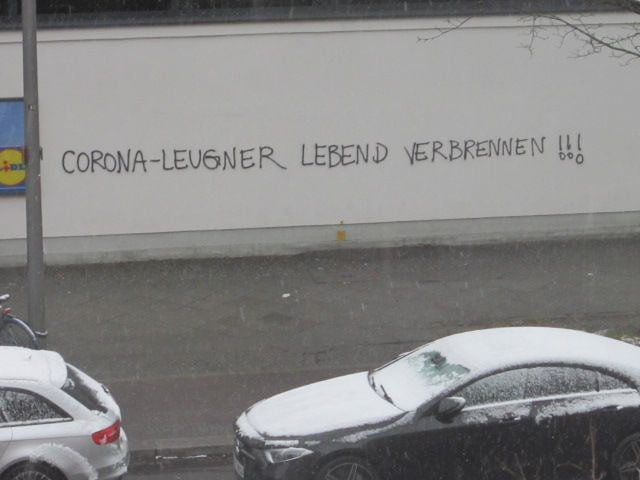 CORONA-LEUGNER LEBEND VERBRENNEN !!!
LIDL